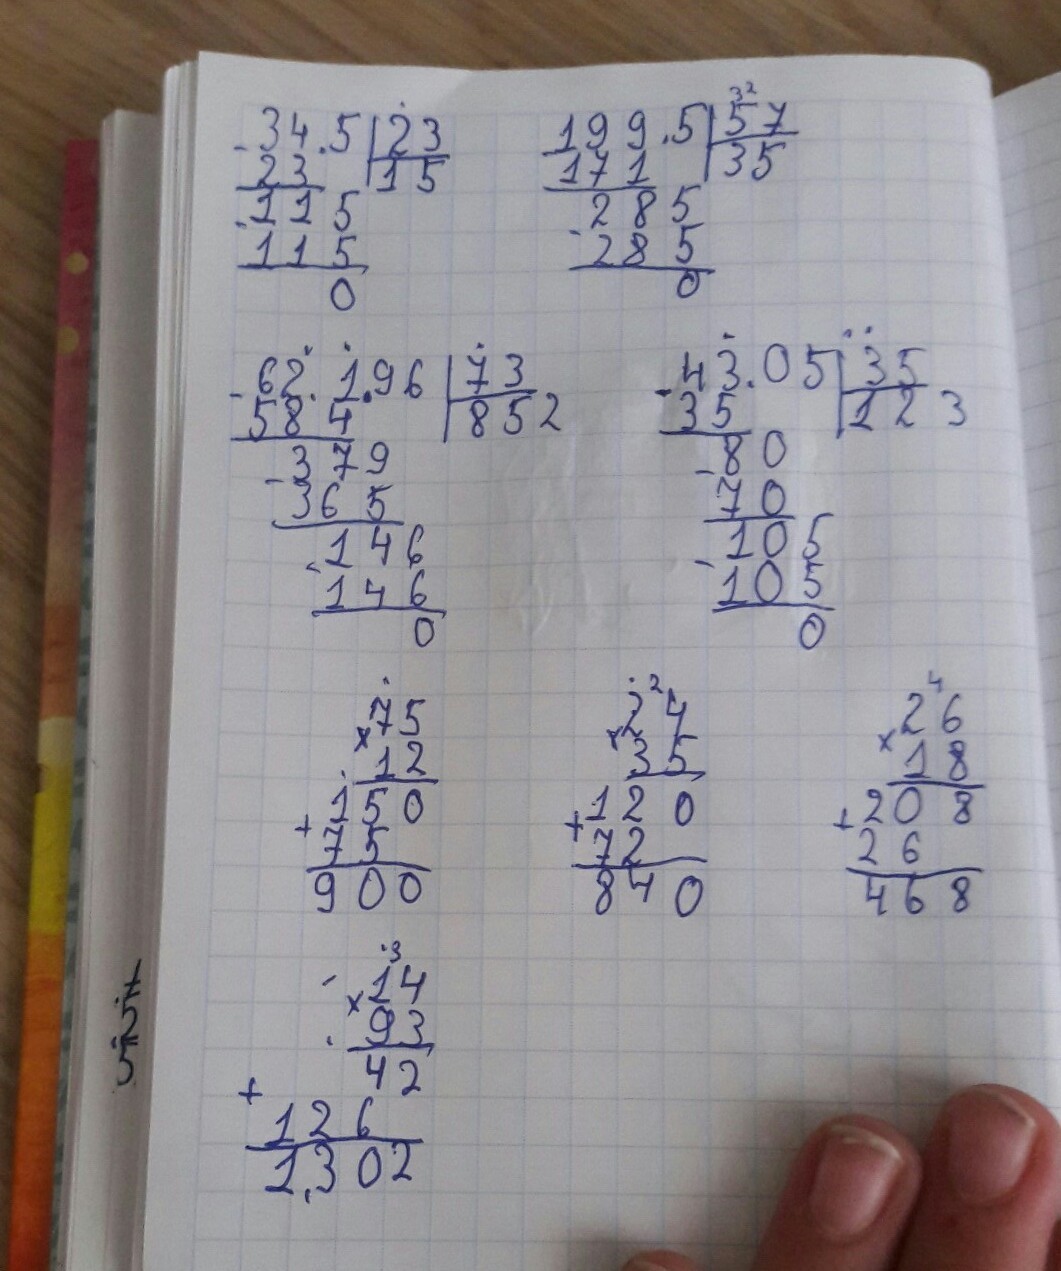 34.5 23
23 15
115
115
0
199.5 57 32
171 35
285
285
0
62.1.96 73
584 852
379
365
146
146
0
43.05 35
35 123
80
70
105
105
0
75
× 12
150
+ 75
900
2
24
× 35
120
+ 72
840
4
26
× 18
208
+ 26
468
3
14
× 93
42
+
126
1302